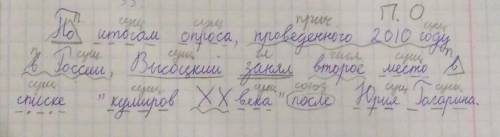 П. О
п сущ сущ прич сущ
По итогам опроса, проведенного 2010 году
сущ сущ гл числ сущ п
в России, Высоцкий занял второе место в
сущ сущ сущ союз сущ сущ
списке "кумиров XX века" после Юрия Гагарина.